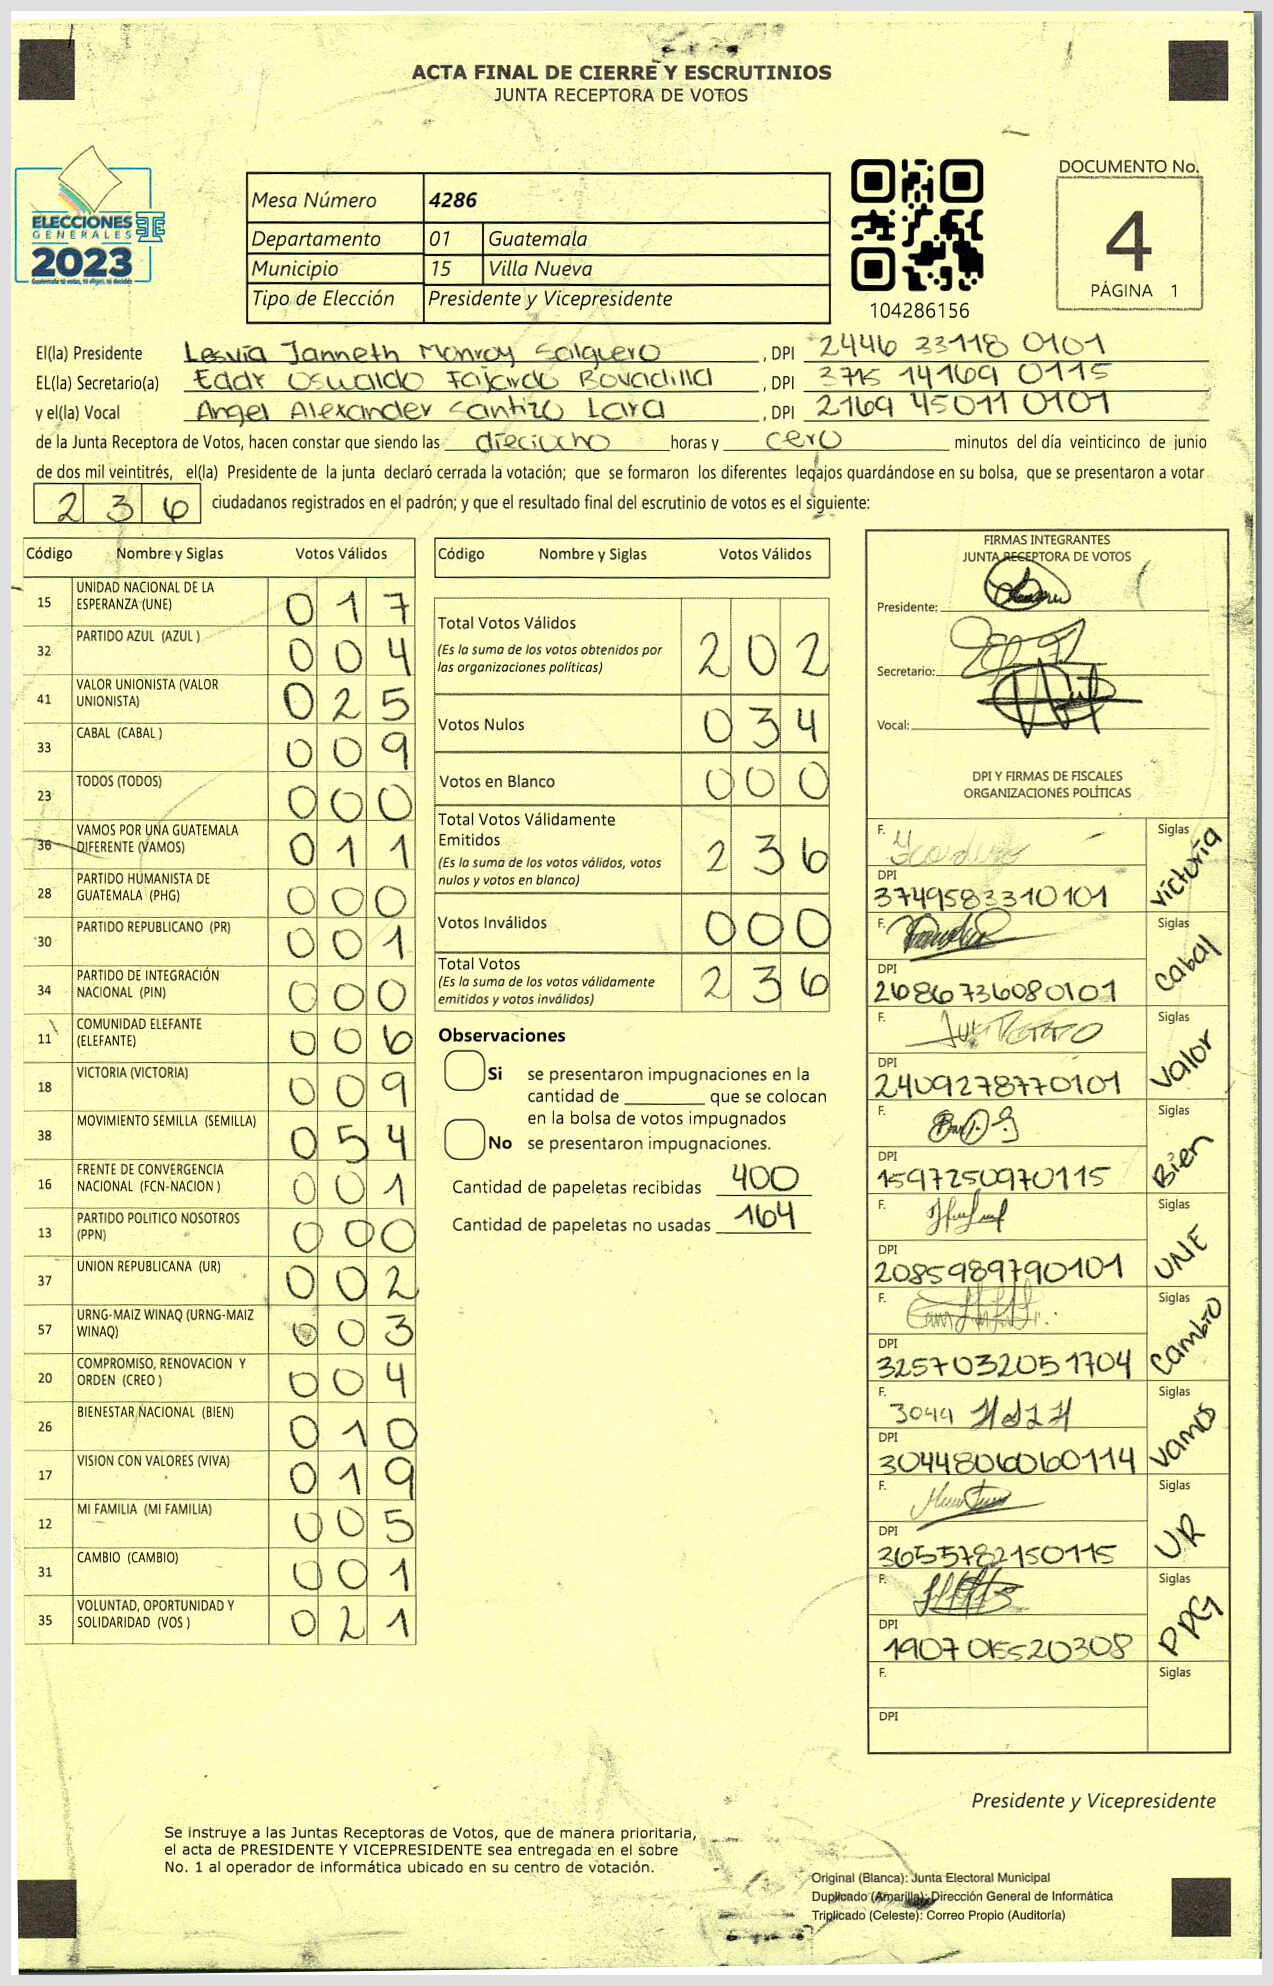 ACTA FINAL DE CIERRE Y ESCRUTINIOS
JUNTA RECEPTORA DE VOTOS
ELECCIONES
GENERALES
2023
Guatemala tú votas, tú eliges, tú decides
Mesa Número 4286
Departamento 01 Guatemala
Municipio 15 Villa Nueva
Tipo de Elección Presidente y Vicepresidente
104286156
DOCUMENTO No.
4
PÁGINA 1
El(la) Presidente Lesvia Janneth Monroy Salguero, DPI 2446 33118 0101
EL(la) Secretario(a) Eddr Oswaldo Fajardo Bovadilla, DPI 3715 14169 0115
y el(la) Vocal Angel Alexander Santizo Lara, DPI 2169 45011 0101
de la Junta Receptora de Votos, hacen constar que siendo las dieciocho horas y cero minutos del día veinticinco de junio
de dos mil veintitrés, el(la) Presidente de la junta declaró cerrada la votación; que se formaron los diferentes legajos guardándose en su bolsa, que se presentaron a votar
236 ciudadanos registrados en el padrón; y que el resultado final del escrutinio de votos es el siguiente:
Código Nombre y Siglas Votos Válidos
15 UNIDAD NACIONAL DE LA ESPERANZA (UNE) 017
32 PARTIDO AZUL (AZUL ) 004
41 VALOR UNIONISTA (VALOR UNIONISTA) 025
33 CABAL (CABAL ) 009
23 TODOS (TODOS) 000
36 VAMOS POR UNA GUATEMALA DIFERENTE (VAMOS) 011
28 PARTIDO HUMANISTA DE GUATEMALA (PHG) 000
30 PARTIDO REPUBLICANO (PR) 001
34 PARTIDO DE INTEGRACIÓN NACIONAL (PIN) 000
11 COMUNIDAD ELEFANTE (ELEFANTE) 006
18 VICTORIA (VICTORIA) 009
38 MOVIMIENTO SEMILLA (SEMILLA) 054
16 FRENTE DE CONVERGENCIA NACIONAL (FCN-NACION ) 001
13 PARTIDO POLITICO NOSOTROS (PPN) 000
37 UNION REPUBLICANA (UR) 002
57 URNG-MAIZ WINAQ (URNG-MAIZ WINAQ) 003
20 COMPROMISO, RENOVACION Y ORDEN (CREO ) 004
26 BIENESTAR NACIONAL (BIEN) 010
17 VISION CON VALORES (VIVA) 019
12 MI FAMILIA (MI FAMILIA) 005
31 CAMBIO (CAMBIO) 001
35 VOLUNTAD, OPORTUNIDAD Y SOLIDARIDAD (VOS ) 021
Código Nombre y Siglas Votos Válidos
Total Votos Válidos 202
(Es la suma de los votos obtenidos por
las organizaciones políticas)
Votos Nulos 034
Votos en Blanco 000
Total Votos Válidamente
Emitidos 236
(Es la suma de los votos válidos, votos
nulos y votos en blanco)
Votos Inválidos 000
Total Votos 236
(Es la suma de los votos válidamente
emitidos y votos inválidos)
Observaciones
Si se presentaron impugnaciones en la
cantidad de ________ que se colocan
en la bolsa de votos impugnados
No se presentaron impugnaciones.
Cantidad de papeletas recibidas 400
Cantidad de papeletas no usadas 164
FIRMAS INTEGRANTES
JUNTA RECEPTORA DE VOTOS
Presidente:
Secretario:
Vocal:
DPI Y FIRMAS DE FISCALES
ORGANIZACIONES POLÍTICAS
F. Siglas Victoria
DPI 3749583310101
F. Siglas Cabal
DPI 2686736080101
F. Siglas Valor
DPI 2409278770101
F. Siglas Bien
DPI 1597250970115
F. Siglas UNE
DPI 2085989790101
F. Siglas Cambio
DPI 3257032051704
F. 3044 Siglas Vamos
DPI 3044806060114
F. Siglas UR
DPI 3655782150115
F. Siglas PPG
DPI 1907 01520308
F. Siglas
DPI
Presidente y Vicepresidente
Se instruye a las Juntas Receptoras de Votos, que de manera prioritaria,
el acta de PRESIDENTE Y VICEPRESIDENTE sea entregada en el sobre
No. 1 al operador de informática ubicado en su centro de votación.
Original (Blanca): Junta Electoral Municipal
Duplicado (Amarilla): Dirección General de Informática
Triplicado (Celeste): Correo Propio (Auditoría)